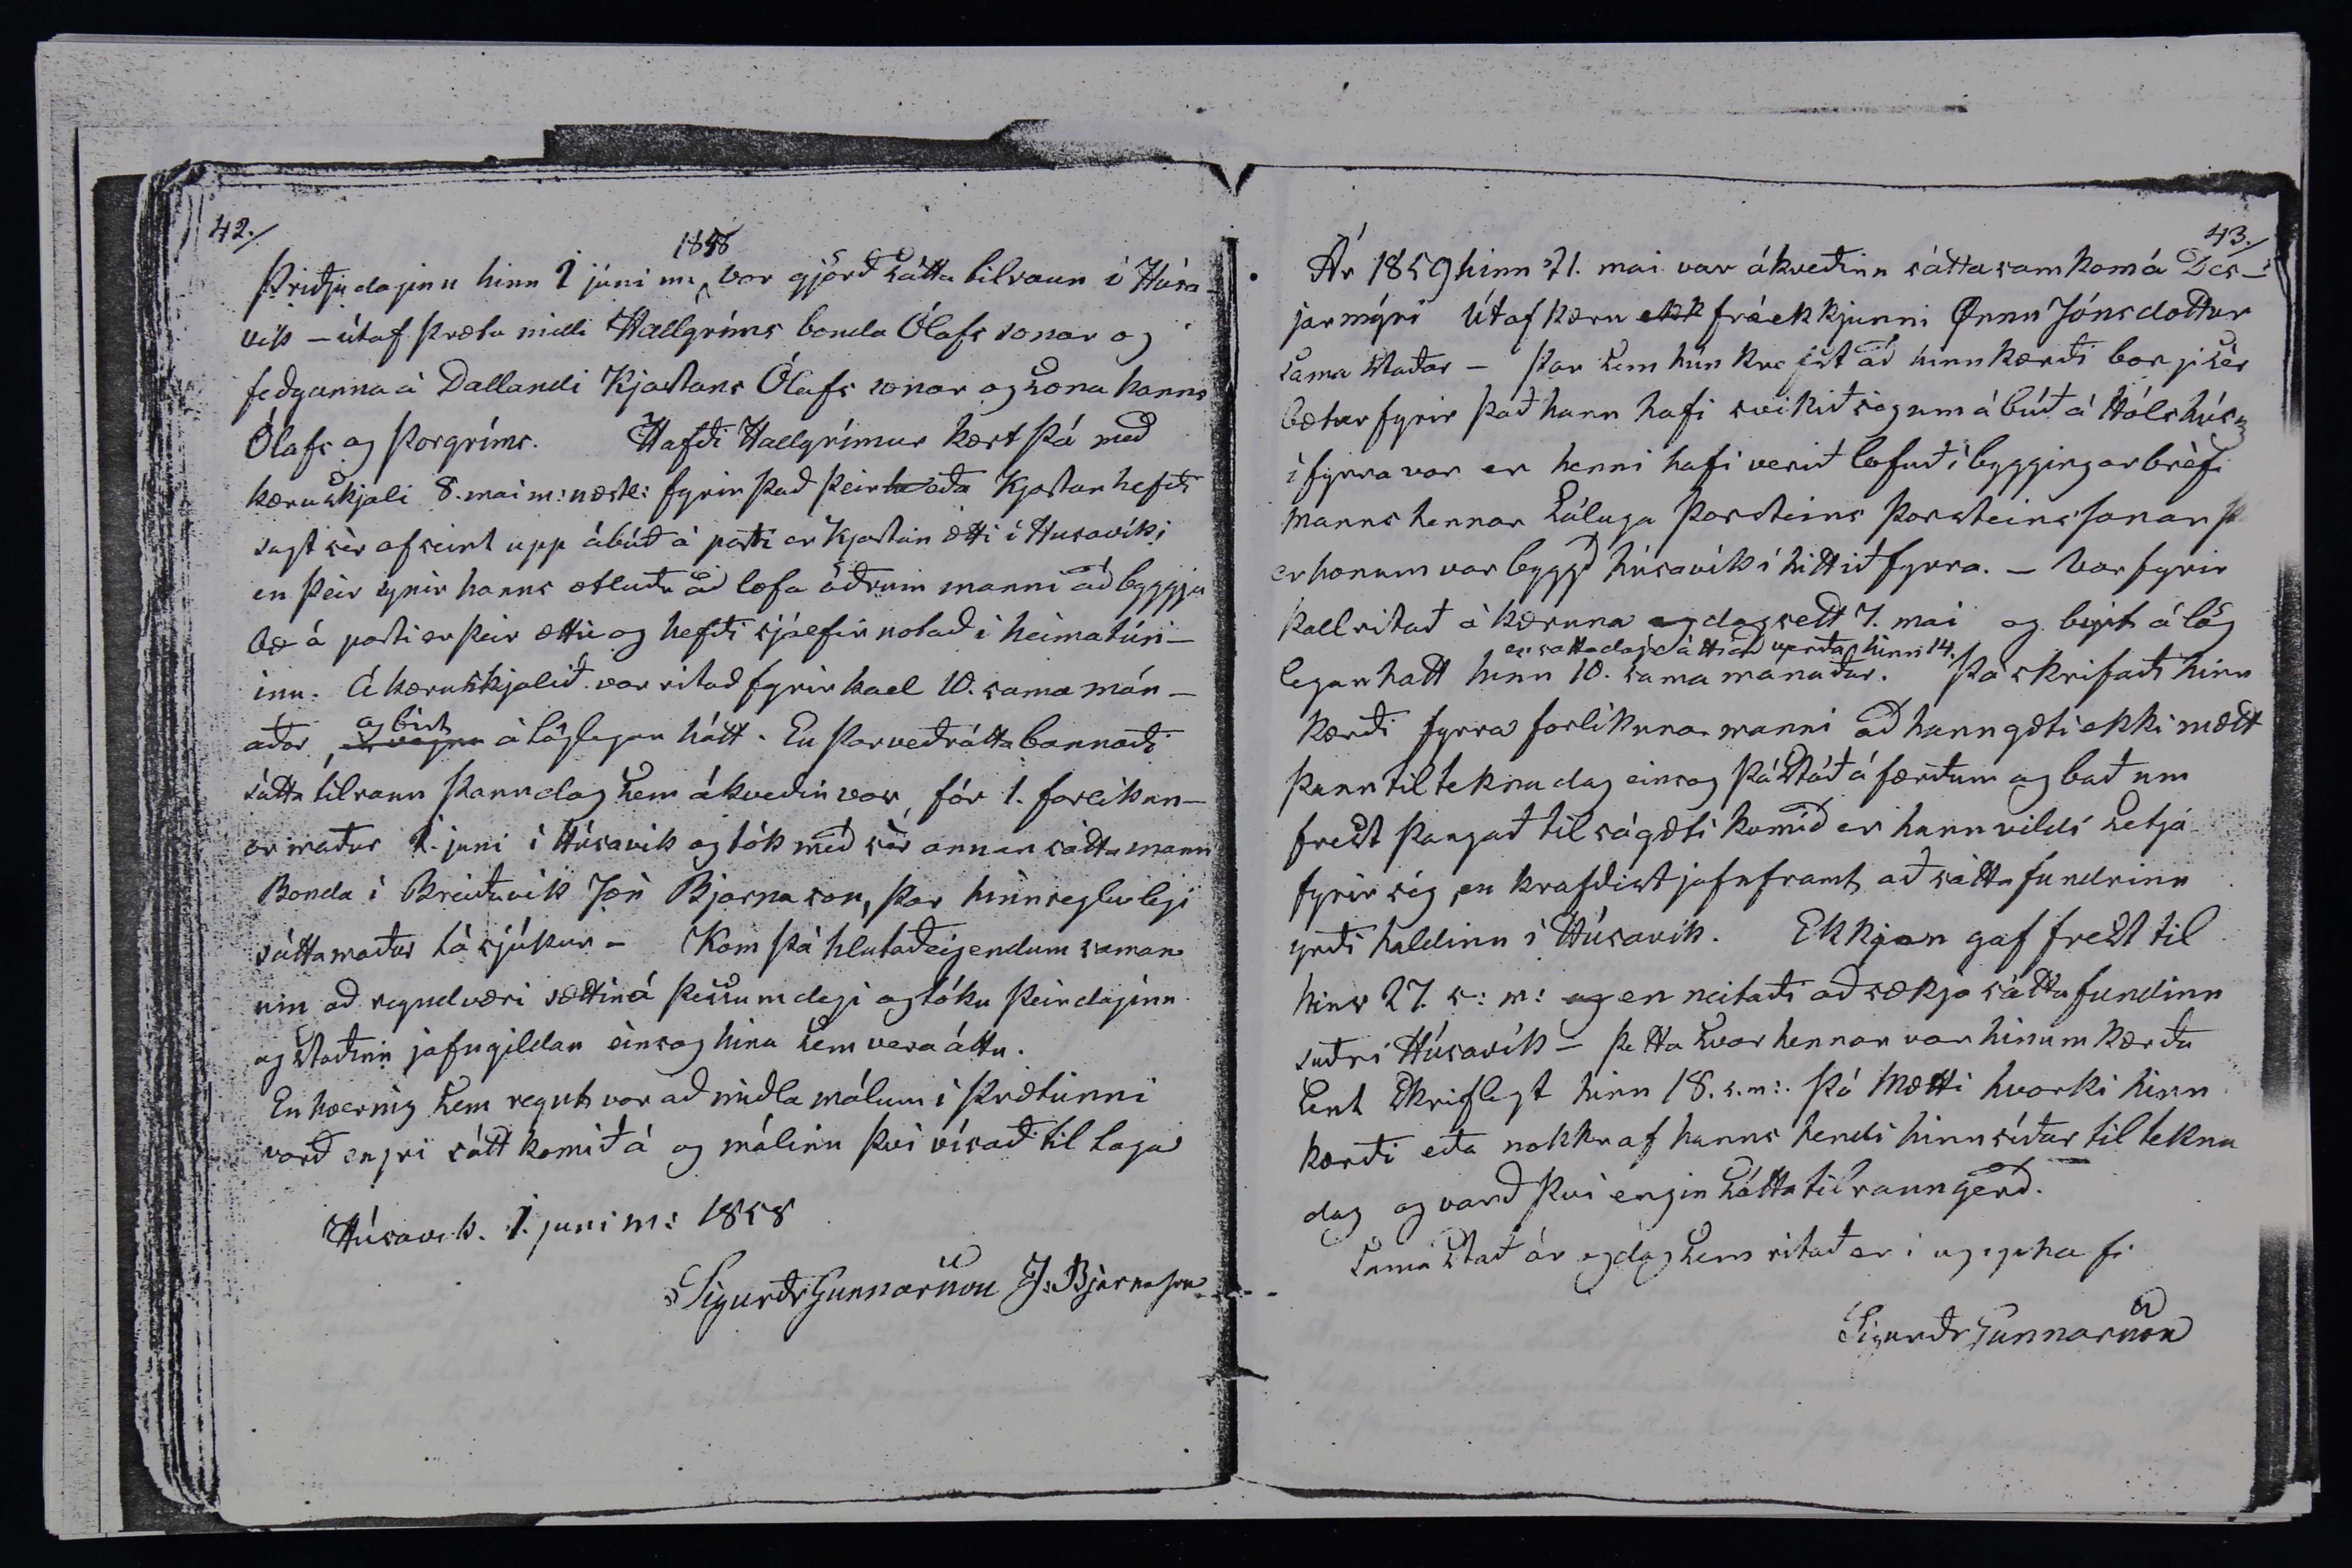 42.
1858
Þriðjudaginn hinn 1 júni m: var gjörð sáttatilraun i Húsa-
vík – útaf þrætu milli Hallgríms bonda Ólafs sonar og
feðganna á Dallandi Kjartans Ólafs sonar og sona hanns
Ólafs og Þorgríms. Hafði Hallgrímur kært þá með
kæru skjali 8. mai m: næstl: fyrir það þeir Kjartan hefði
sagt sèr ofseint upp ábúð á parti er Kjartan ætti i Husavík;
en þeir synir hanns ætluðu að lofa öðrum manni að byggja
bæ á parti er þeir ættu og hefði sjálfir notað i heimatúni-
inu. Á kæruskjalið var ritað fyrirkall 10. sama mán-
aðar, og birt á löglegan hátt. En þar veðrátta bannaði
sátta tilraun þann dag sem ákveðin var, fór 1. forlíkun-
ar maður 1. juni i Húsavik og tók með sèr annan sáttamann
Bonda i Breiðuvík Jón Bjarnason, þar hinn reglulegi
sáttamaður lá sjúkur – Kom þá hlutaðeigendum saman
um að reynd væri sættin á þessum degi og tóku þeir daginn
og staðinn jafngildan einsog hina sem vera áttu.
En hvernig sem reynt var að miðla málum i þrætunni
varð engri sátt komið á og málinu því vísað til laga
Húsavik. 1. juni m: 1858
Sigurðr Gunnarsson J. Bjarnason
43.
Ár 1859 hinn 21. mai var ákveðinn sáttasamkoma á Des-
jarmýri útaf kæru frá ekkjunni Önnu Jónsdottur
sama staðar – þar sem hún krefst að hinn kærði borgi sèr
bætur fyrir það hann hafi svikið sig um ábúð á Hólshúsum
i fyrra vor er henni hafi verið lofuð i byggingarbrèfi
manns hennar sáluga Þorsteins Þorsteinssonar
er honum var byggð húsavík i hittiðfyrra. – Var fyrir
kall ritað á kæruna og dagsett 7. mai og birt á lög
er sattadag átti að verða hinn 14.
legan hatt hinn 10. sama mánaðar. Þá skrifaði hinn
kærði fyrra forlíkunar manni að hann gæti ekki mætt
þann tiltekna dag einsog þá stóð á færðum og bað um
frest þangað til sá gæti komið er hann vildi setja
fyrir sig, en krafðist jafnframt að sáttafundrinn
yrði haldinn i Húsavík. Ekkjan gaf frest til
hins 27. s: m: og en neitaði að sækja sáttafundinn
suðri Húsavík – þetta svar hennar var hinum kærða
sent skriflegt hinn 18. s. m:. Þó mætti hvorki hinn
kærði eða nokkur af hanns hendi hinn síðar tiltekna
dag og varð því engin sáttatilraun gerð.
Sama stað ár og dag sem ritað er i upphafi
Sigurðr Gunnarsson